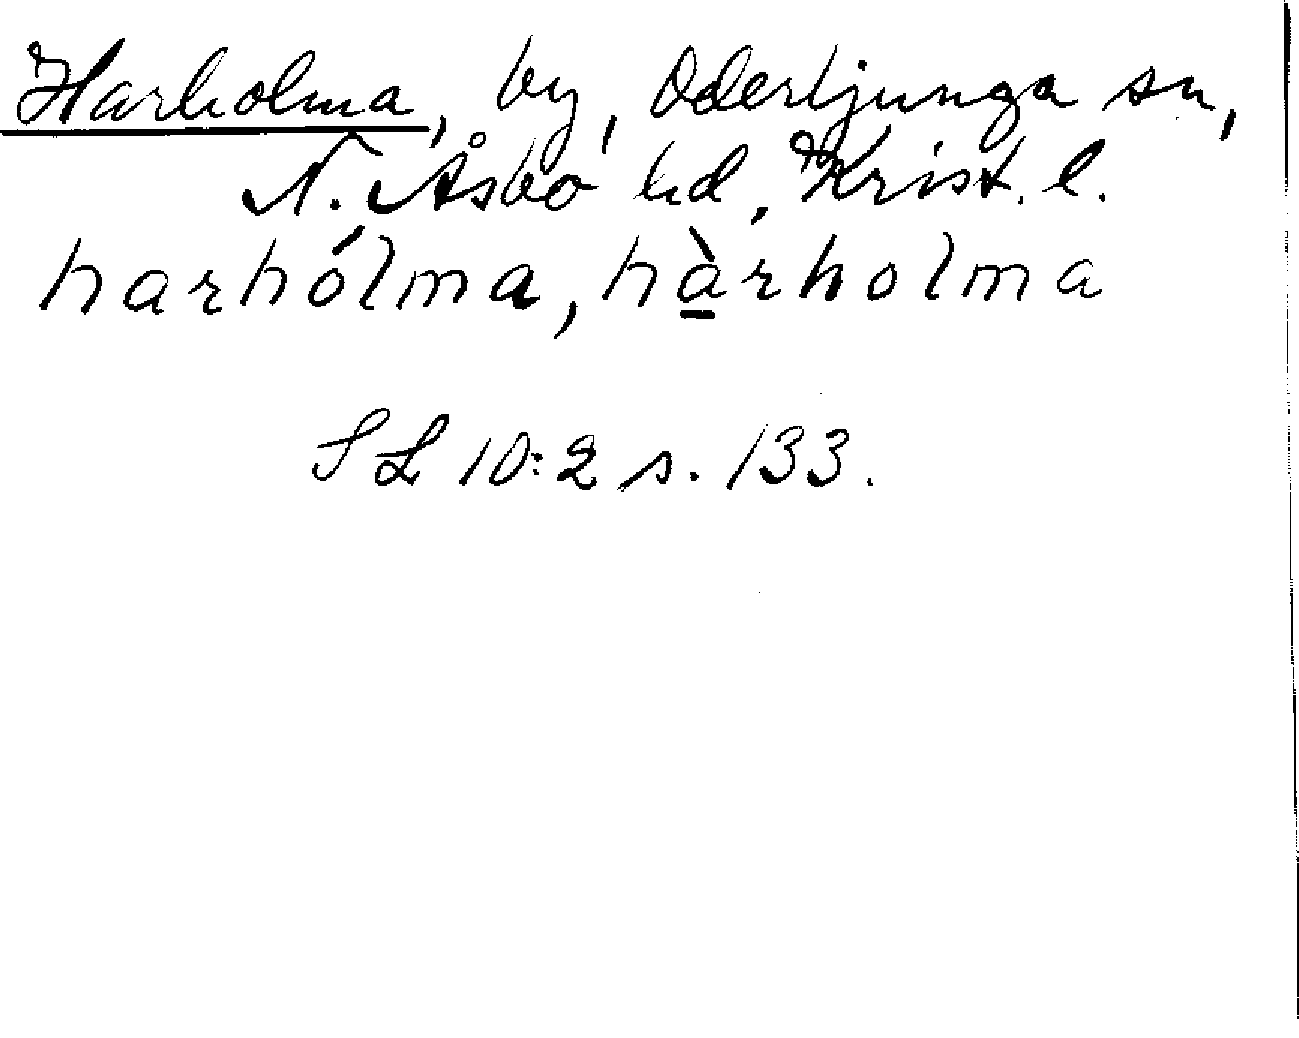 Harholma, by, Oderljunga sn,
N. Åsbo hd, Krist. l.
harhólma, hà̱rholma
SL 10:2 s. 133.